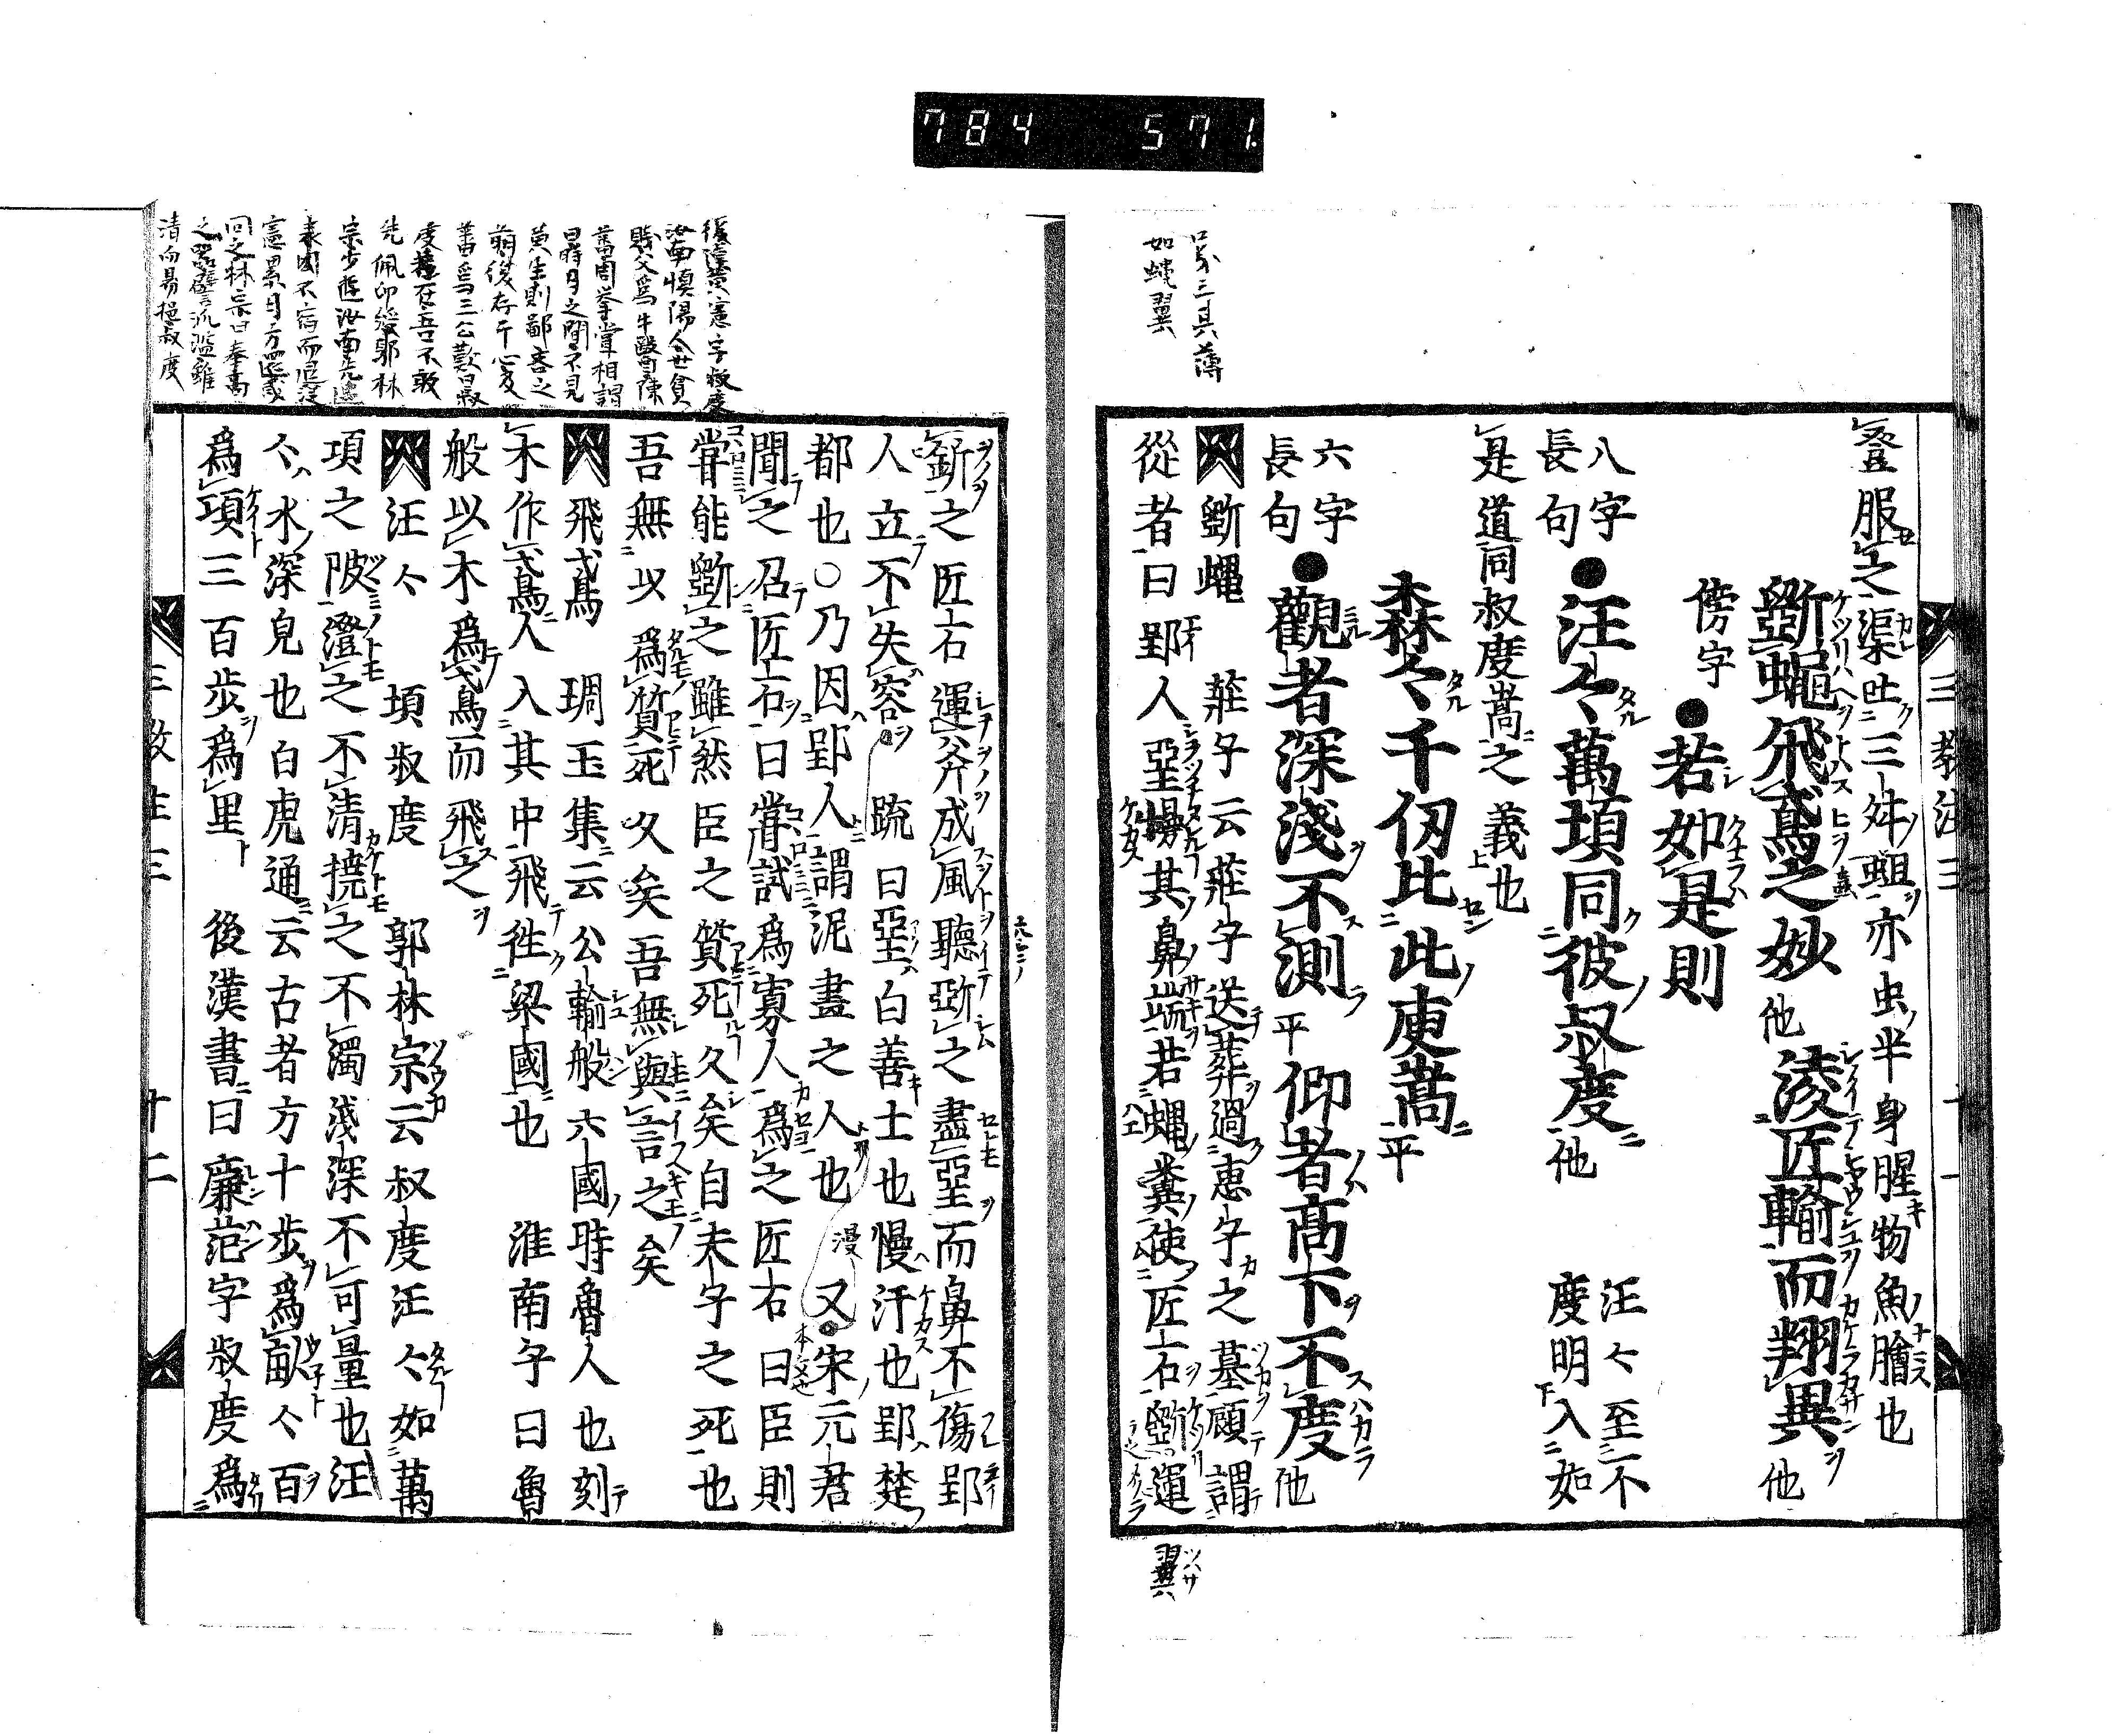 784 571.
登服之渠吐三舛蛆亦虫半身腥物魚膾也
斲蠅飛鳶之妙 他 淩匠輸而翔異 他
傍字 ●若如是則
八字長句 ●汪々萬頃同彼叔度 他 汪々至不度明入如
是道同叔度嵩之義也
森々千仞比此庾嵩 平
六字長句 ●觀者深淺不測 平 仰者高下不度 他
斲蠅 莊子云莊子送葬過惠子之墓顧謂
從者曰郢人堊慢其鼻端若蠅糞使匠石斲運
翼
如蠅翼
釿之匠石運斧成風聽斲之盡堊而鼻不傷郢
人立不失容 疏曰堊白善士也慢汗也郢楚
都也○乃因郢人謂泥畫之人也 漫 又宋元君
聞之召匠石曰嘗試爲寡人爲之匠石曰臣則
嘗能斲之雖然臣之質死久矣自夫子之死也
吾無以爲質死久矣吾無與言之矣
飛鳶 琱玉集云公輸般六國時魯人也刻
木作鳶人入其中飛徃梁國也 淮南子曰魯
般以木爲鳶而飛之
汪々 頃叔度 郭林宗云叔度汪々如萬
頃之陂澄之不清撓之不濁淺深不可量也汪
々水深皃也白虎通云古者方十步爲畝々百
爲頃三百步爲里 後漢書曰廉范字叔度爲
後漢黃憲字叔度
汝南慎陽人世貧
賤父爲牛醫陳
蕃周擧常相謂
曰時月之間不見
黃生則鄙吝之
萌復存乎心及
蕃爲三公歎曰叔
度若在吾不敢
先佩印綬郭林
宗少遊汝南先過
袁閎不宿而退
之器譬諸汎濫雖
清而易挹叔度